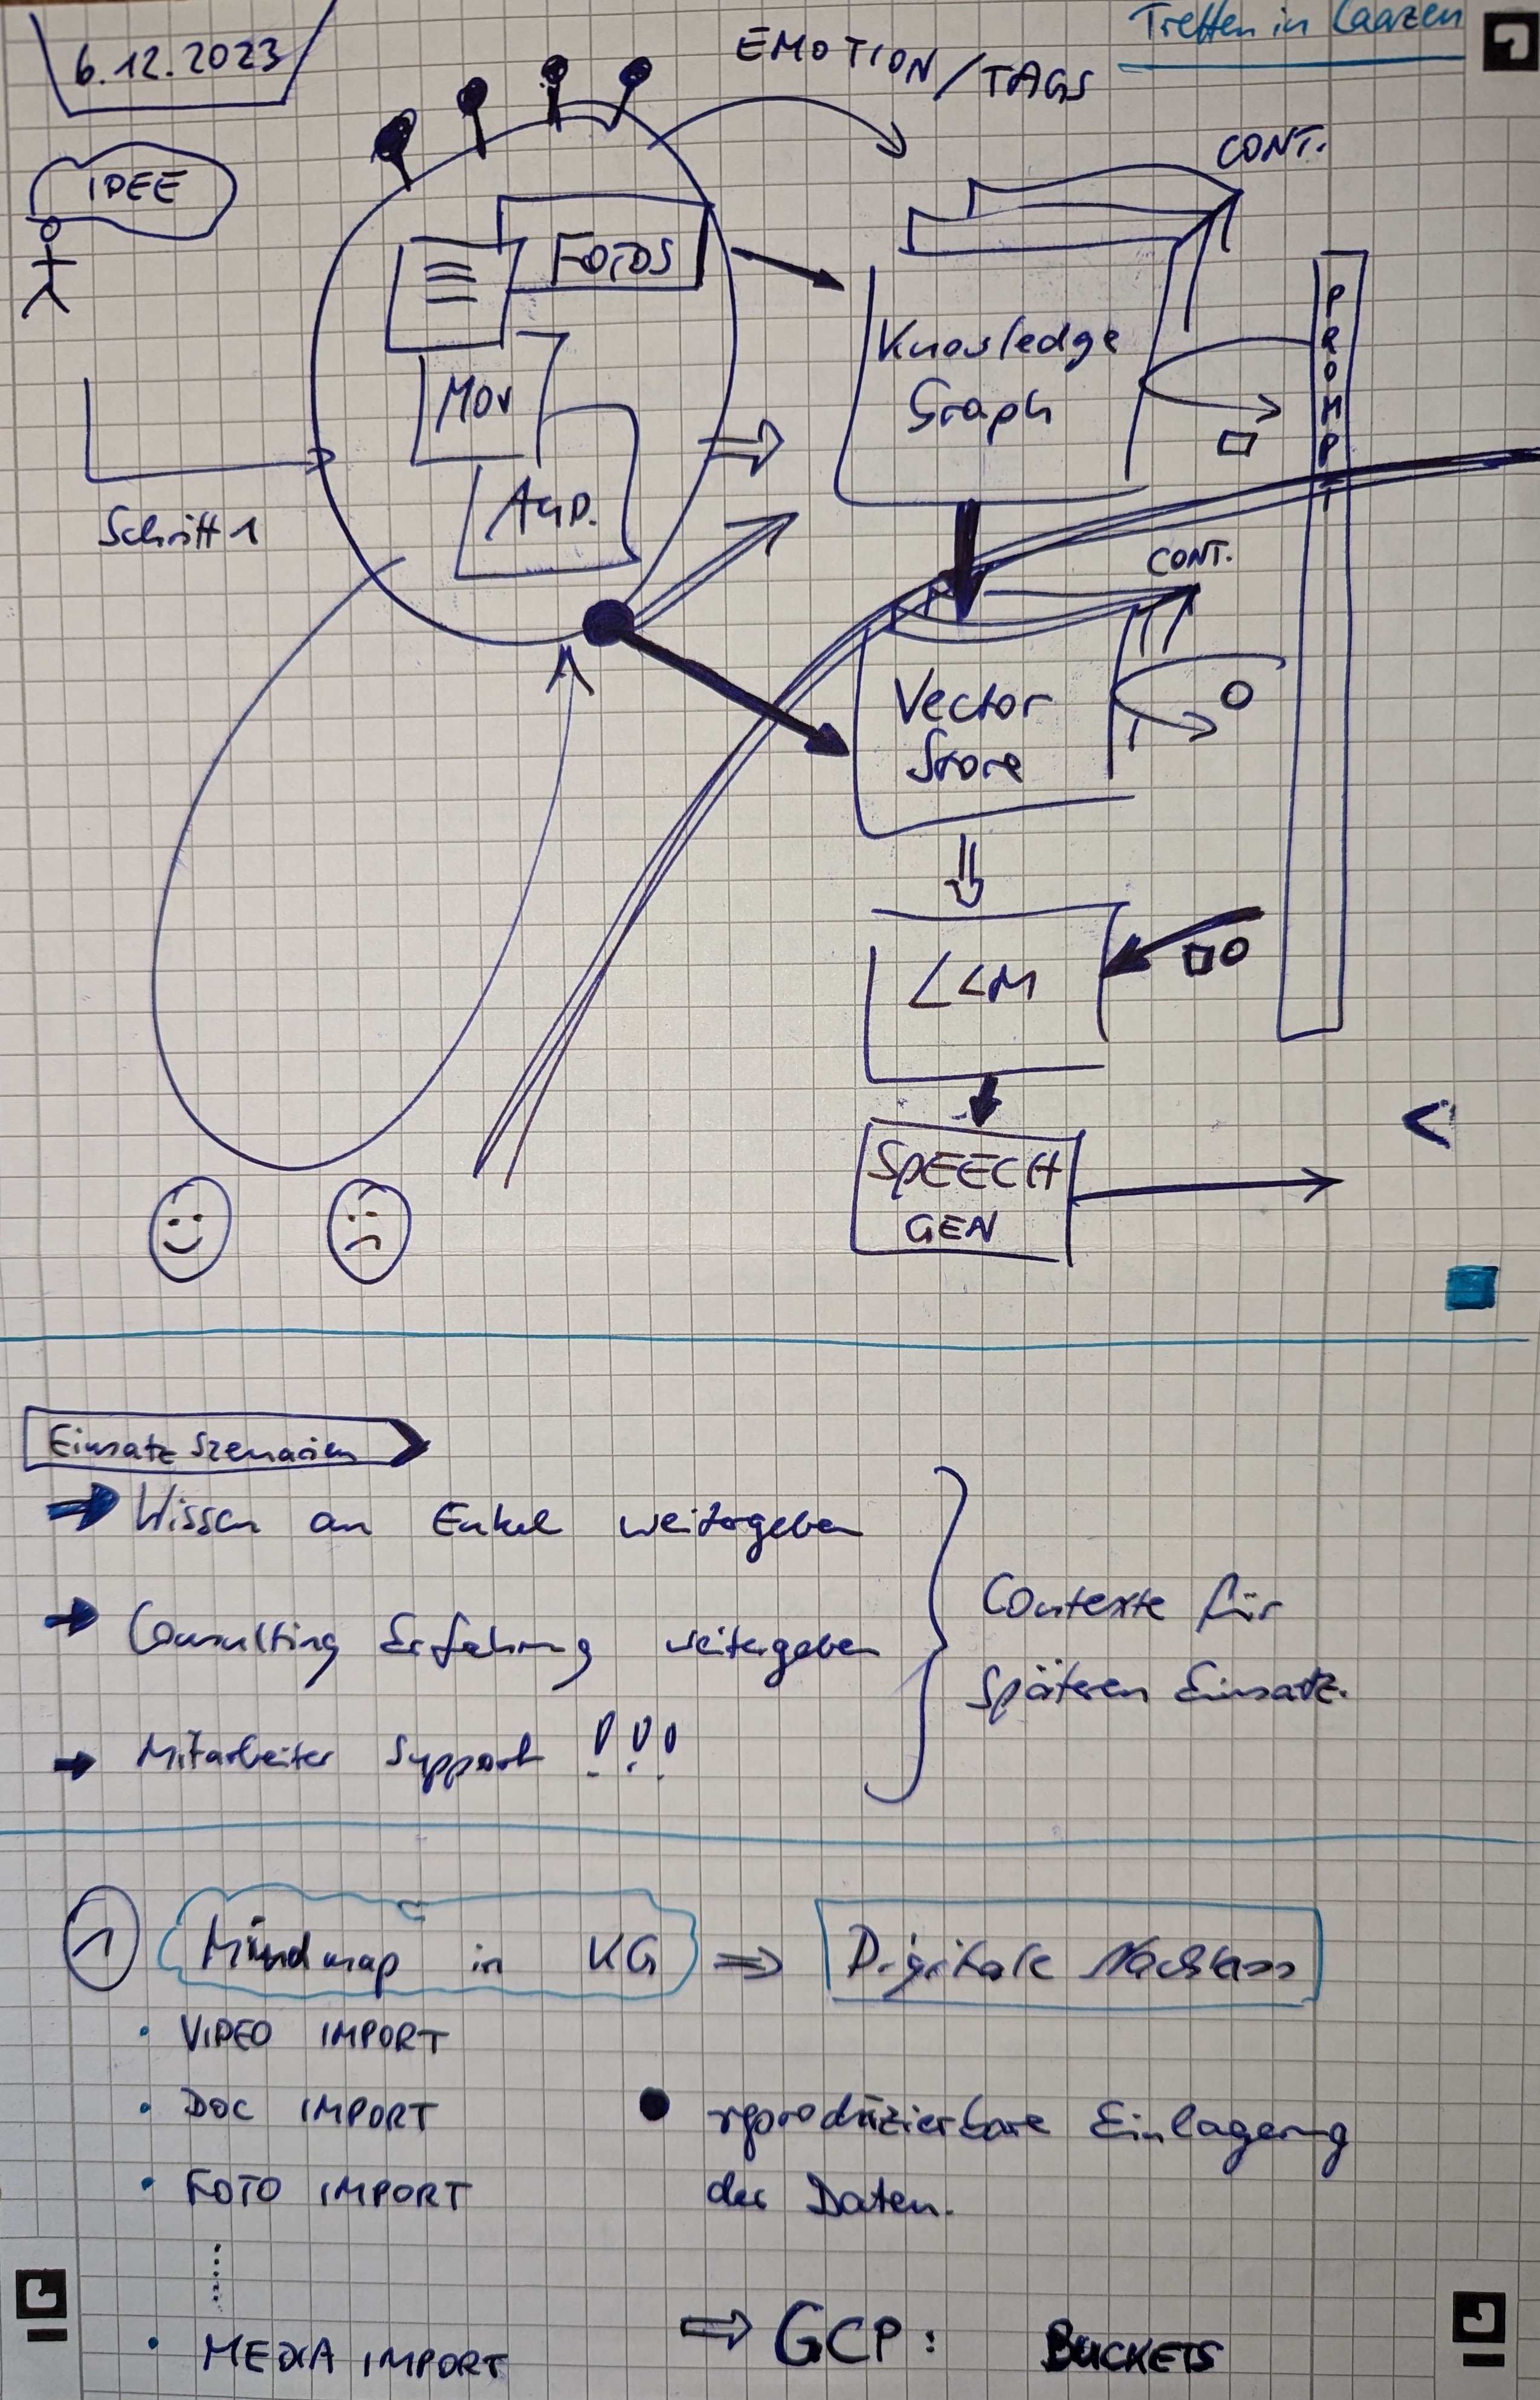 6.12.2023
EMOTION/TAGS
Treffen in Laatzen
IDEE
CONT.
FOTOS
MOV
AUD.
Schritt 1
Knowledge
Graph
PROMPT
CONT.
Vector
Store
LLM
SPEECH
GEN
Einsatz Szenarien
Wissen an Enkel weitergeben
Consulting Erfahrung weitergeben
Mitarbeiter Support !!!
Contexte für
späteren Einsatz.
1 Mindmap in KG ⇒ Digitale Nachlass
• VIDEO IMPORT
• DOC IMPORT
• FOTO IMPORT
......
• MEDIA IMPORT
• reproduzierbare Einlagerung
der Daten.
⇒ GCP: BUCKETS